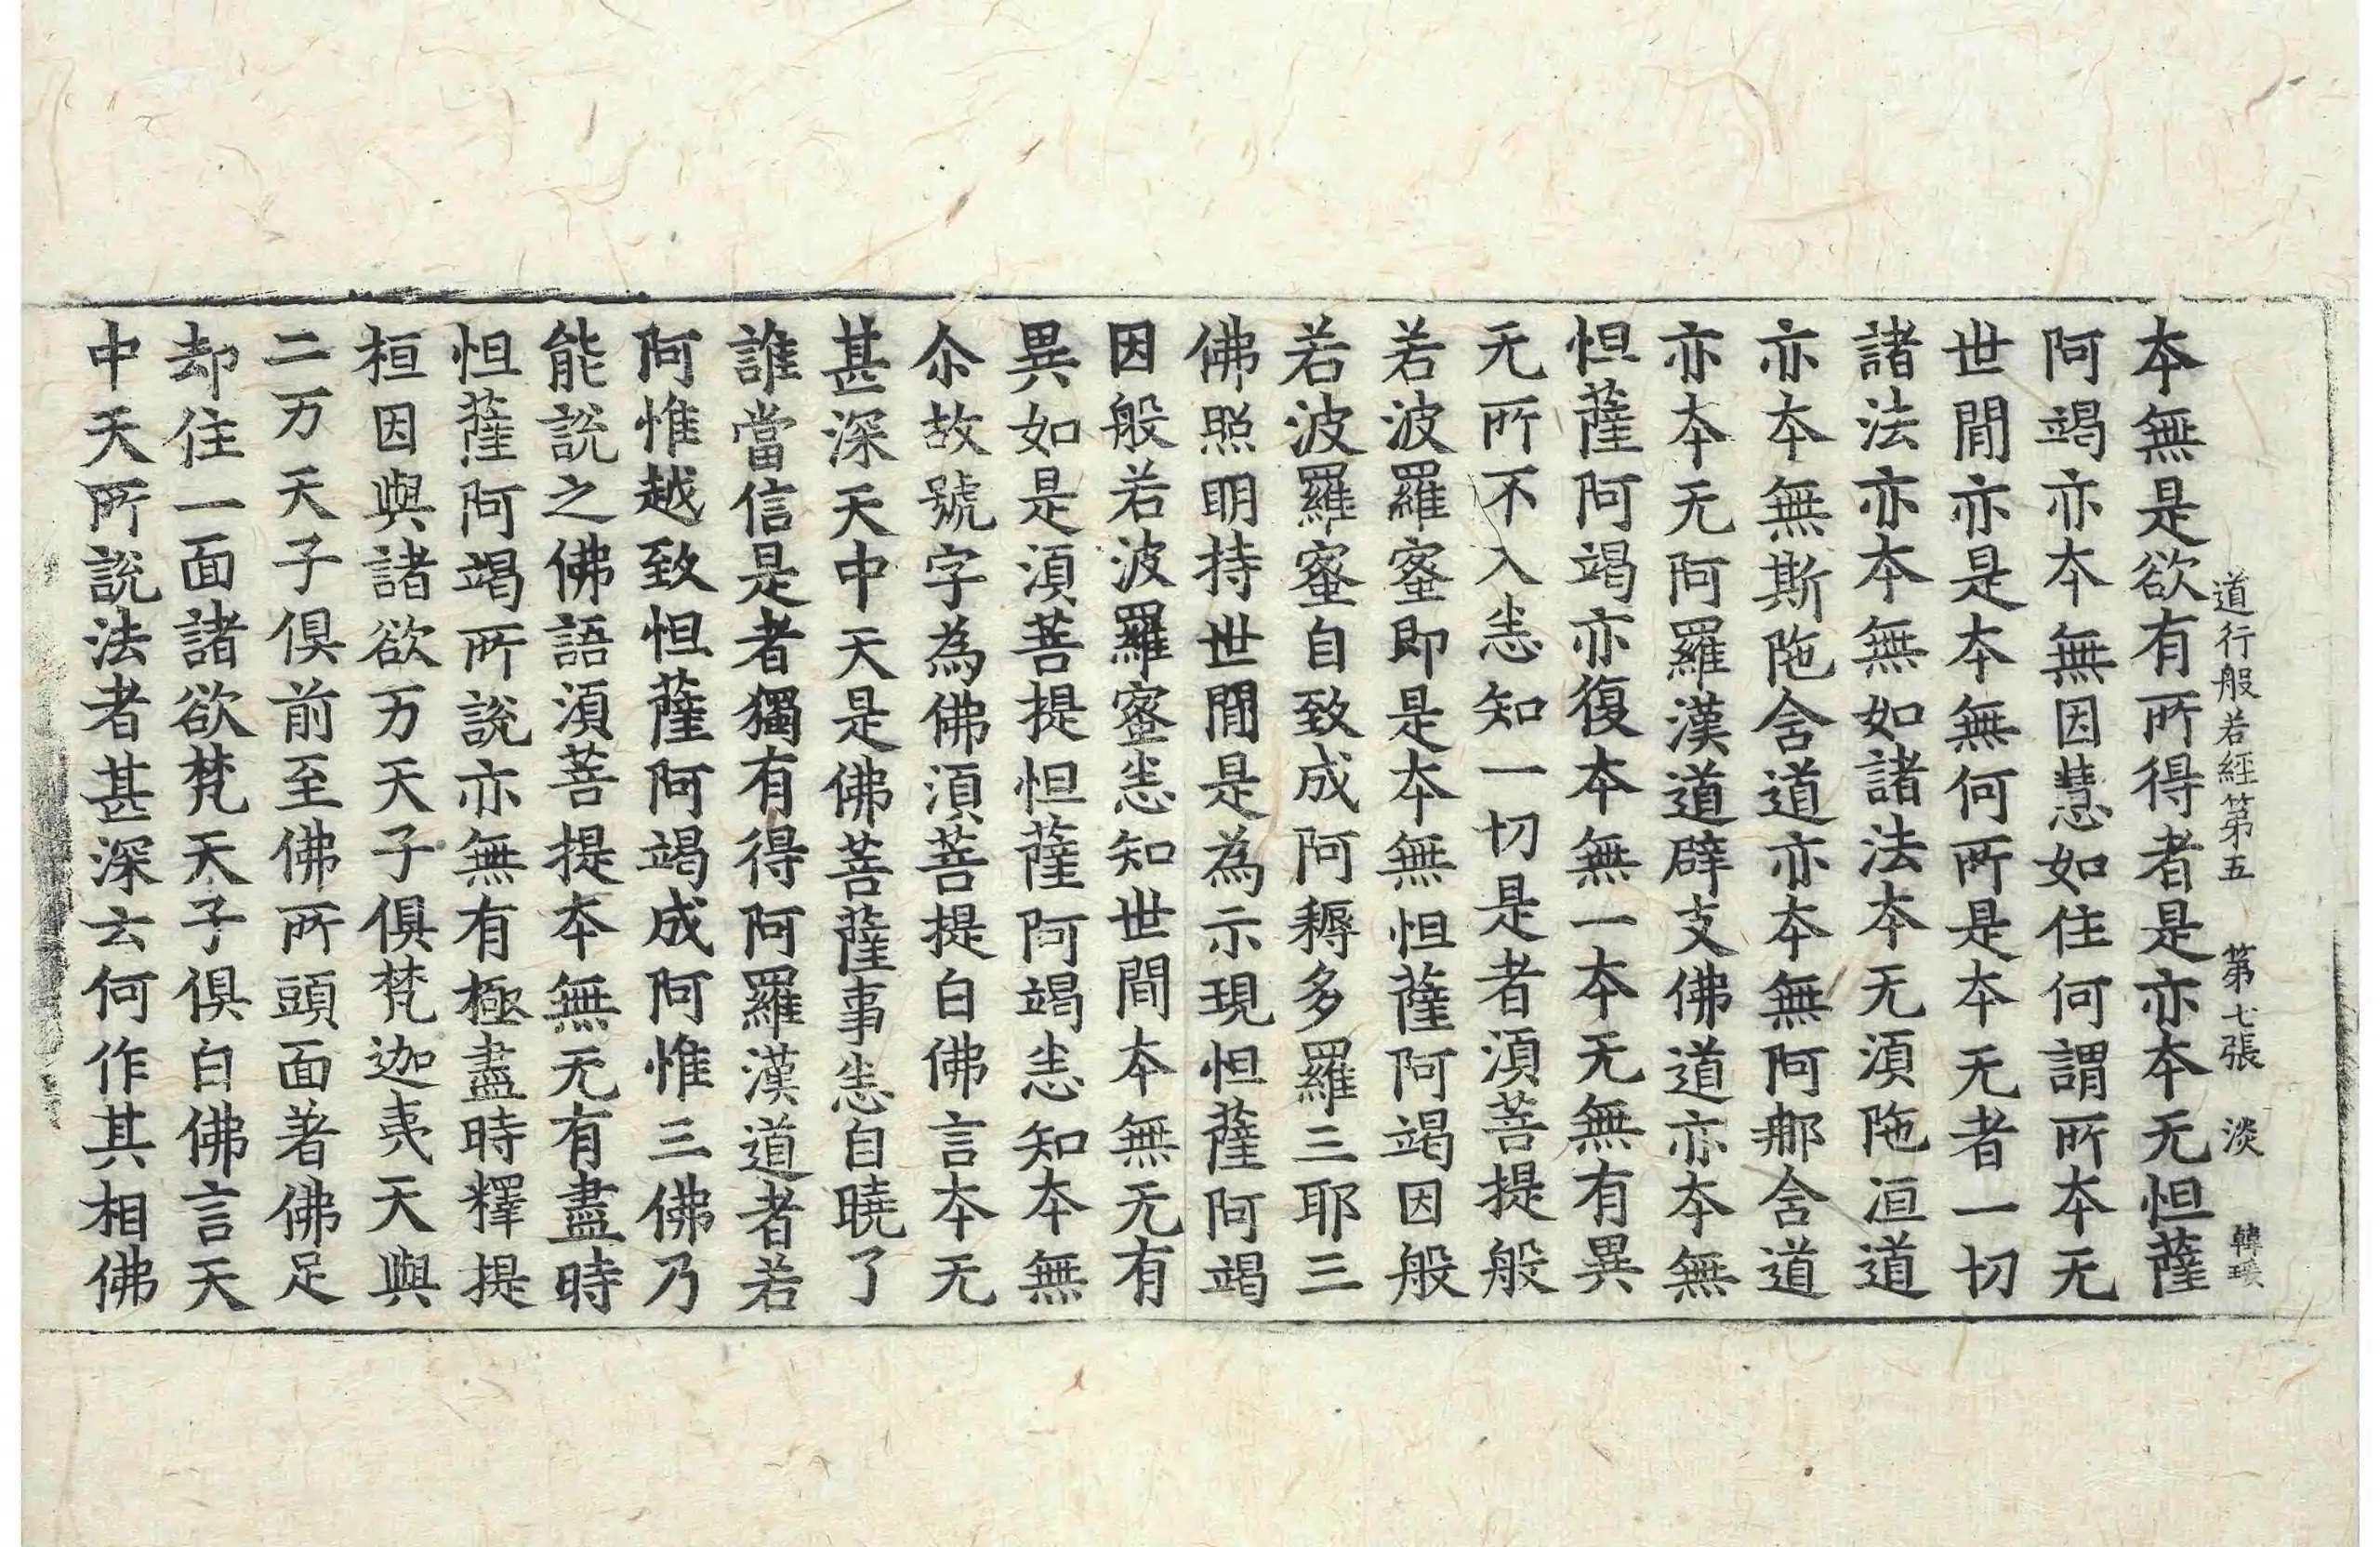 道行般若經第五　第七張　淡　韓瑗
本無是欲有所得者是亦本无怛薩
阿竭亦本無因慧如住何謂所本无
世閒亦是本無何所是本无者一切
諸法亦本無如諸法本无須陁洹道
亦本無斯陁含道亦本無阿那含道
亦本无阿羅漢道辟支佛道亦本無
怛薩阿竭亦復本無一本无無有異
无所不入悉知一切是者須菩提般
若波羅蜜即是本無怛薩阿竭因般
若波羅蜜自致成阿耨多羅三耶三
佛照明持世閒是為示現怛薩阿竭
因般若波羅蜜悉知世間本無无有
異如是須菩提怛薩阿竭悉知本無
尒故號字為佛須菩提白佛言本无
甚深天中天是佛菩薩事悉自曉了
誰當信是者獨有得阿羅漢道者若
阿惟越致怛薩阿竭成阿惟三佛乃
能說之佛語須菩提本無无有盡時
怛薩阿竭所說亦無有極盡時釋提
桓因與諸欲万天子俱梵迦夷天與
二万天子俱前至佛所頭面著佛足
却住一面諸欲梵天子俱白佛言天
中天所說法者甚深云何作其相佛